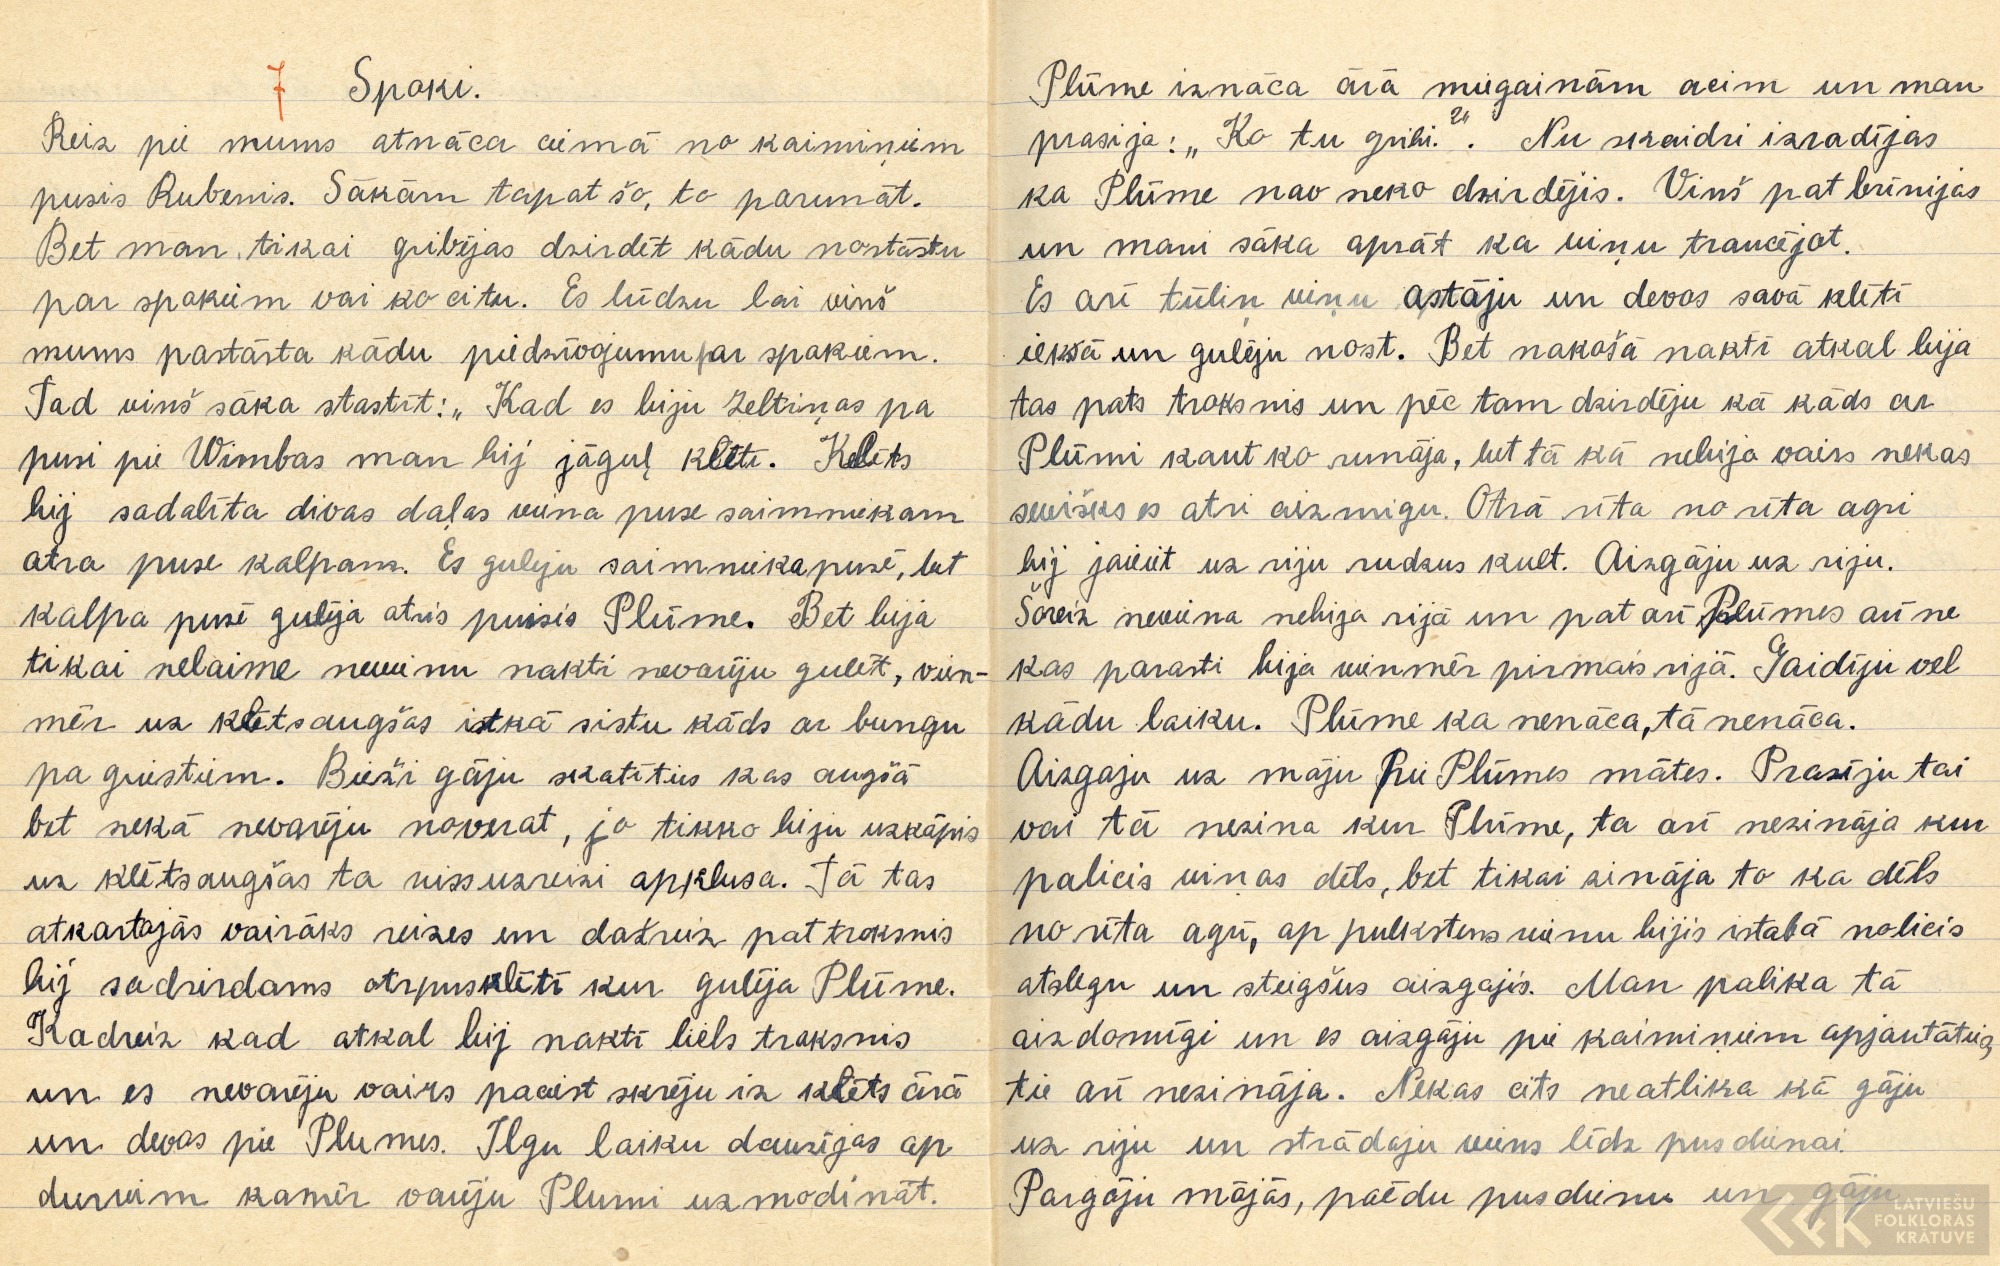 7 Spoki.
Reiz pie mums atnāca ciemā no kaimiņiem
pusis Rubenis. Sākām tapat šo, to parunāt.
Bet man tikai gribējas dzirdēt kādu nostāstu
par spokiem vai ko citu. Es lūdzu lai viņš
mums pastāsta kādu piedzīvojumu par spokiem.
Tad viņš sāka stastīt: „Kad es biju Zeltiņas pa
pusi pie Wimbas man bij jāguļ klētī. Klēts
bij sadalīta divas daļas viena puse saimniekam
otra puse kalpam. Es guleju saimnieka pusē, bet
kalpa pusē gulēja otris puisis Plūme. Bet bija
tikai nelaime nevienu nakti nevarēju gulēt, vien-
mēr uz klētsaugšas itkā sistu kāds ar bungu
pa griestiem. Bieži gāju skatīties kas augšā
bet nekā nevarēju noverat, jo tikko biju uzkāpis
uz klētsaugšas ta vissuzreizi apklusa. Tā tas
atkartojās vairāks reizes un dažreiz pat troksnis
bij sadzirdams otrpus klētī kur gulēja Plūme.
Kadreiz kad atkal bij naktī liels troksnis
un es nevarēju vairs paciest skrēju iz klēts ārā
un devos pie Plumes. Ilgu laiku dauzījas ap
durvim kamēr varēju Plumi uzmodināt.
Plūme iznāca ārā miegainām acim un man
prasija: „Ko tu gribi?". Nu skaidri izradījas
ka Plūme nav neko dzirdējis. Viņš pat brīnijas
un mani sāka aprāt ka viņu traucējot.
Es arī tūliņ viņu astāju un devos savā klētī
iekšā un gulēju nost. Bet nakošā naktī atkal bija
tas pats troksnis un pēc tam dzirdēju kā kāds ar
Plūmi kaut ko runāja, bet tā kā nebija vairs nekas
sevišks es atri aizmigu. Otrā rīta no rīta agri
bij jaieiet uz riju rudzus kult. Aizgāju uz riju.
Šoreiz neviena nebija rijā un pat arī Plūmes arī ne
kas parasti bija vienmēr pirmais rijā. Gaidīju vel
kādu laiku. Plūme ka nenāca, tā nenāca.
Aizgaju uz māju pie Plūmes mātes. Prasīju tai
vai tā nezina kur Plūme, ta arī nezināja kur
palicis viņas dēls, bet tikai zināja to ka dēls
no rīta agri, ap pulkstens vienu bijis istabā nolicis
atslegu un steigšus aizgajis. Man palika tā
aizdomīgi un es aizgāju pie kaimiņiem apjautāties,
tie arī nezināja. Nekas cits neatlika kā gāju
uz riju un strādaju viens līdz pusdienai.
Pargāju mājās, paēdu pusdienu un gāju
LATVIEŠU
FOLKLORAS
KRĀTUVE